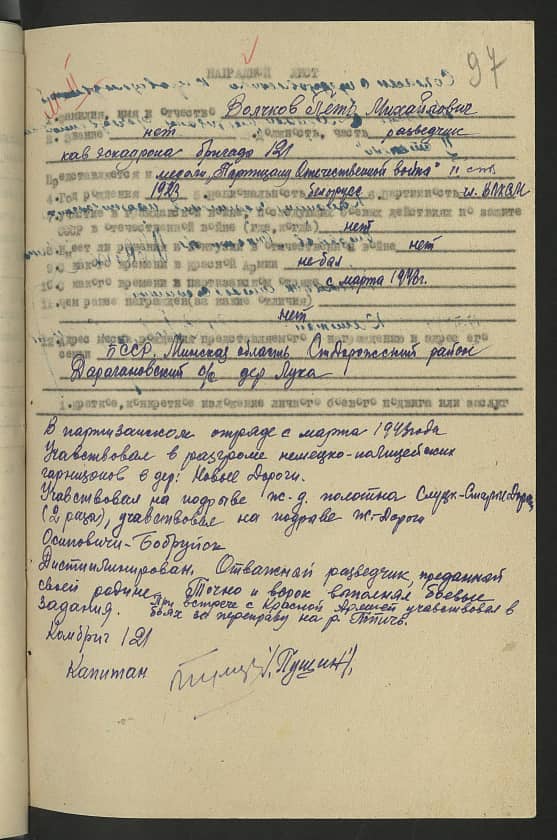 97
НАГРАДНОЙ ЛИСТ
1. Фамилия, имя и отчество Волчков Петъ Михайлович
2. Звание нет Должность, часть разведчик
кав эскадрона бригада 121
Представляется к медали "Партизану Отечественной война" II ст.
4. Год рождения 1923 5. национальность белорус 6. партийность чл. ВЛКСМ
СССР в отечественной войне (где, когда) нет
8. Имеет ли ранения и отечественной войне нет
9. С какого времени в Красной Армии не был
10. С какого времени в партизанском с марта 1943г.
11. Чем ранее награжден (за какие отличия)
нет
12. Адрес места рождения представляемого к награждению и адрес его
семьи БССР, Минская область Ст-Дорожсский район
Дарагановский с/с дер Лука
1. Краткое, конкретное изложение личного боевого подвига или заслуг
В партизанском отряде с марта 1943 года
Учавствовал в разгроме немецко-полицейских
гарнизонов в дер: Новые Дороги.
Учавствовал на подрыве ж.д. полотна Слуцк-Старые Дороги
(2 раза), учавствовал на подраве Ж-Дороги
Осиповичи-Бобруйск
Дистиплинирован. Отважнай разведчик, преданнай
своей родине. Точно и всрок выполнял боевые
задания. При встрече с Красной Армией учавствовал в
боях за переправу на р. Птичь
Комбриг 121
Капитан /Пущин/